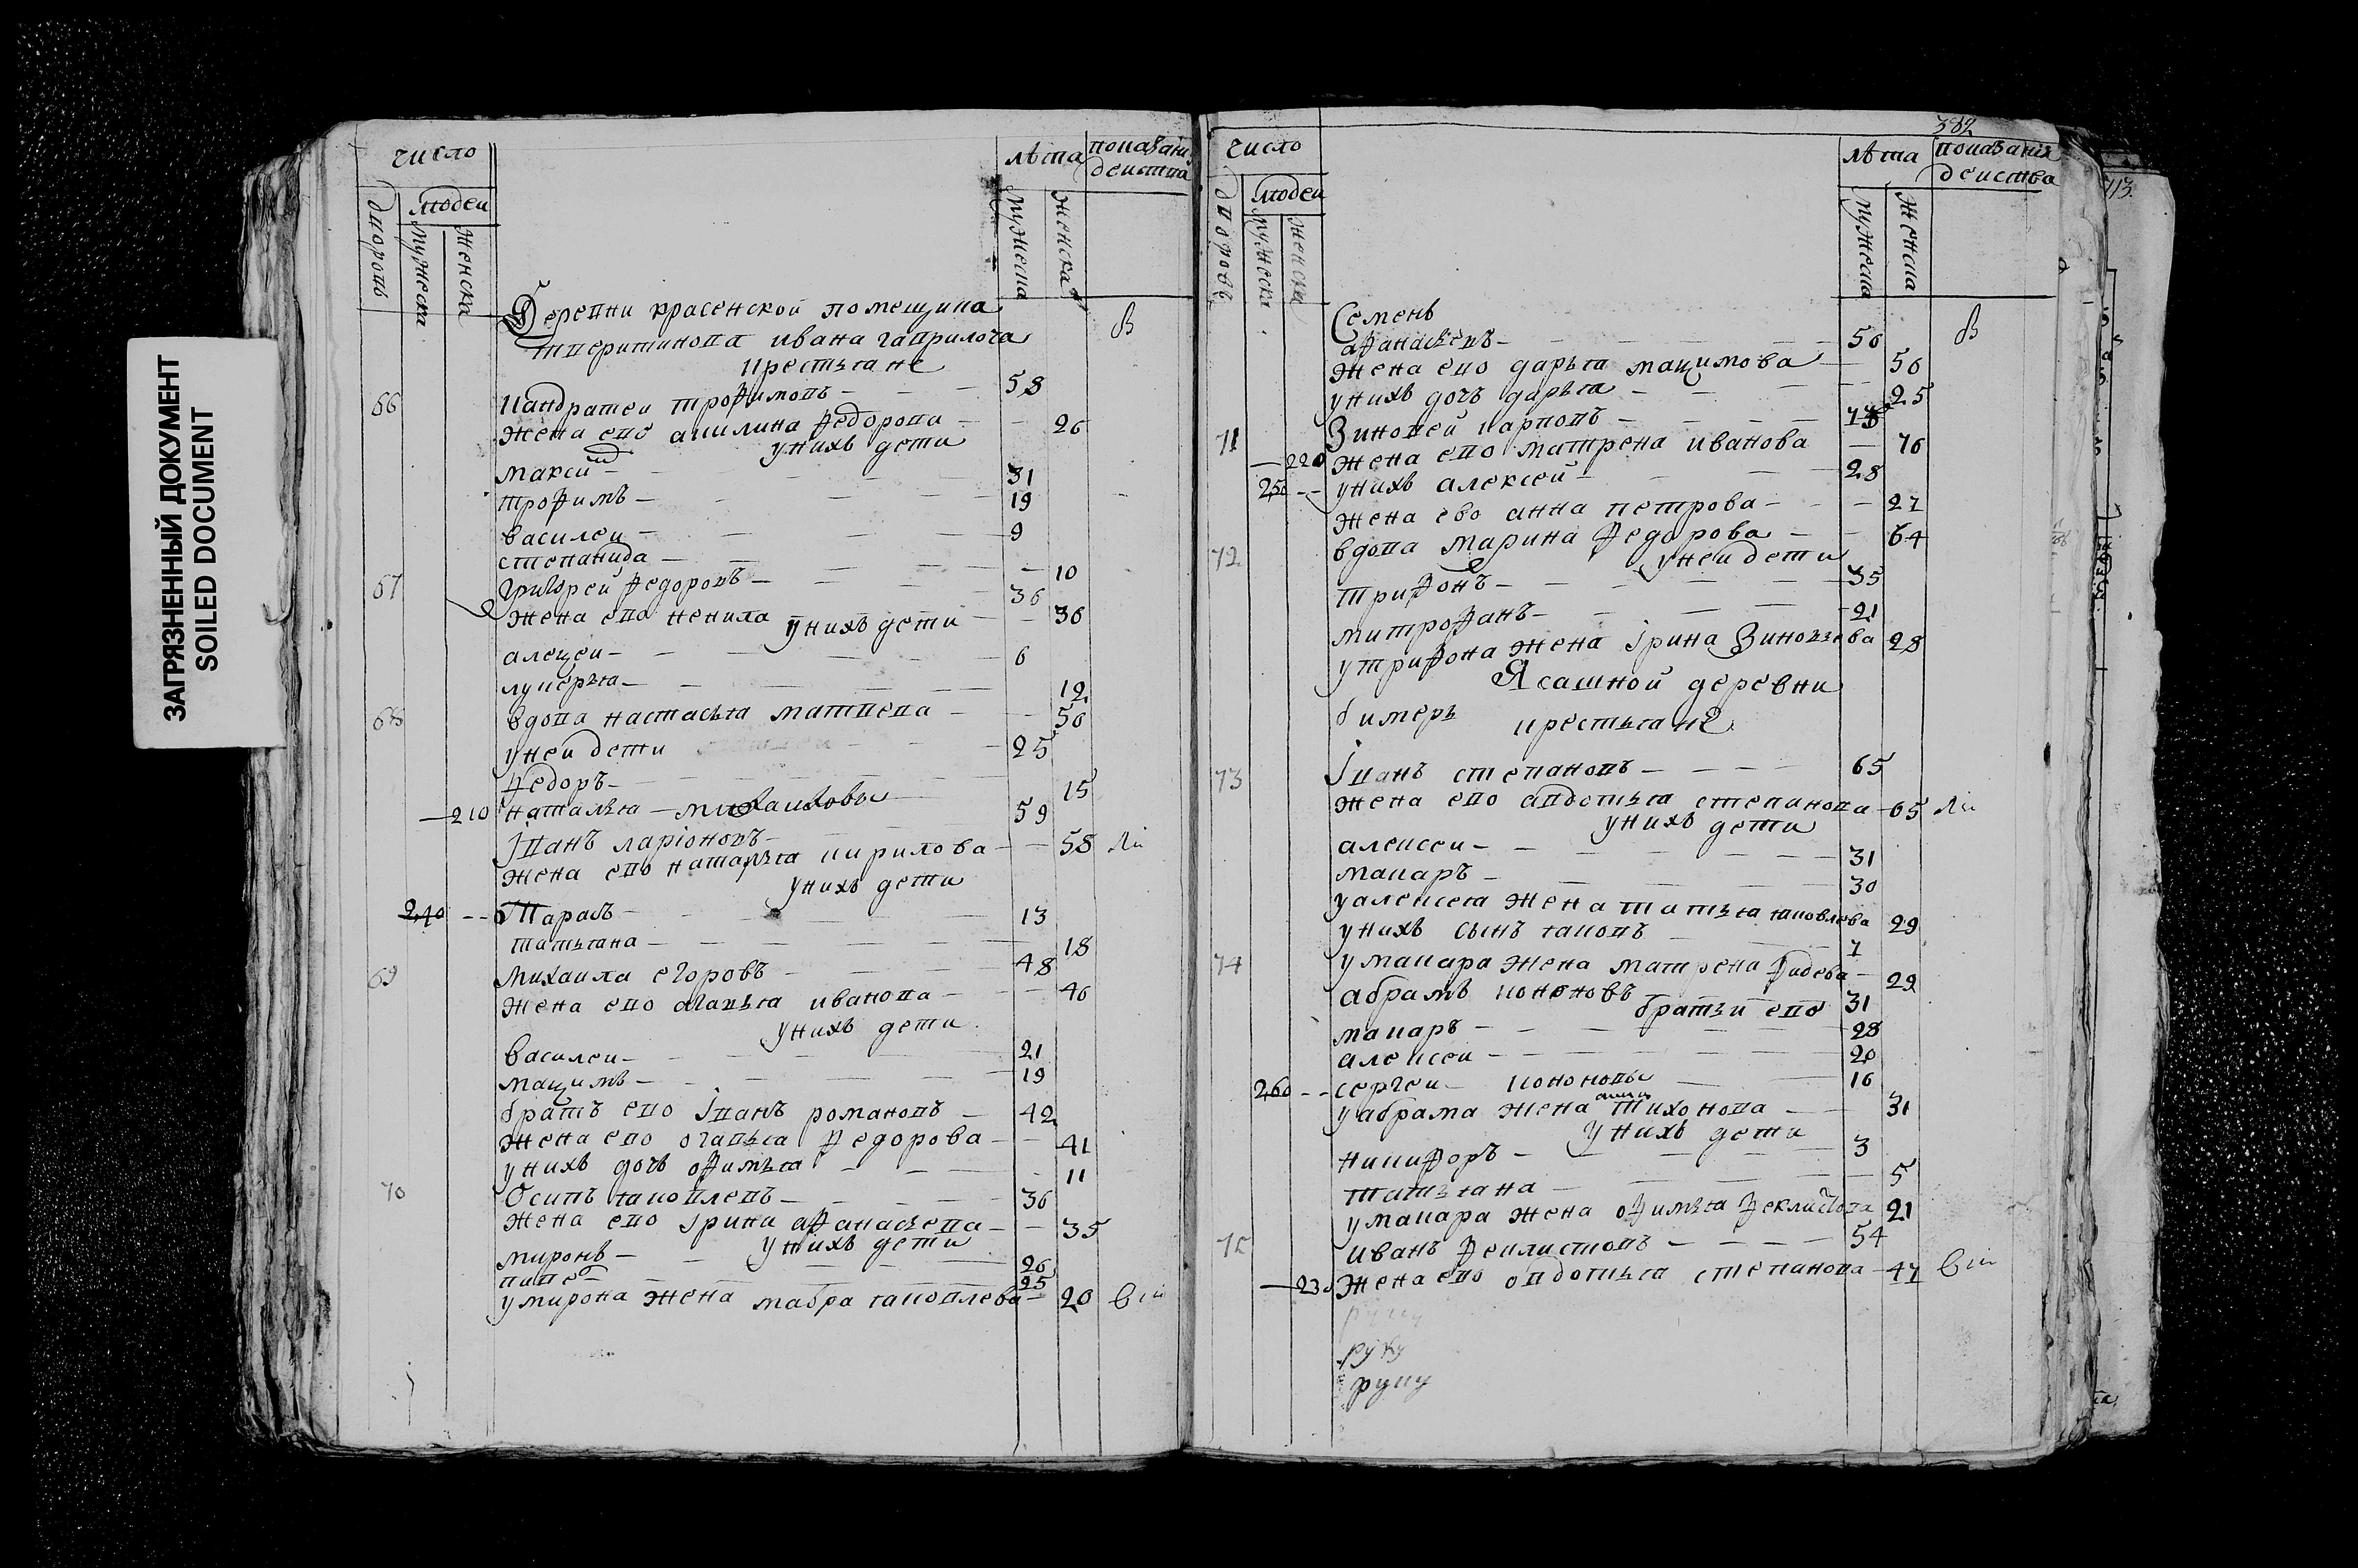 ЗАГРЯЗНЕННЫЙ ДОКУМЕНТ
SOILED DOCUMENT
число
лѣта
показани
деиства
дворовъ
людеи
мужеска
женска
мужеска
женска
Деревни красенской помещика
тверитинова ивана гаврилоча
крестьяне
В
66 Кандратеи трофимовъ 58
жена ево акилина федорова 26
унихъ дети
максим 31
трофимъ 19
василеи 9
степанида 10
67 григореи федоровъ 36
жена ево ненила 36
унихъ дети
алеѯеи 6
лукерья 12
68 вдова настасья матвева 50
унеи дети 25
федоръ
210 наталья михаиловы 15
іванъ ларіоновъ 59
жена ево наталья кирилова 58
унихъ дети
240 Тарасъ 13
татьяна 18
69 михаила егоровъ 48
жена ево агапья иванова 46
унихъ дети
василеи 21
маѯимъ 19
братъ ево іванъ романовъ 42
жена ево огапья федорова 41
унихъ дочь офимья 11
70 Осипъ яковлевъ 36
жена ево ірина афанасьева 35
унихъ дети
миронъ 26
25
умирона жена мавра яковлева 20
382
число
лѣта
показания
деиства
дворовъ
людеи
мужеска
женска
мужеска
женска
Семенъ
В
афанасьевъ 56
жена ево дарья маѯимова 56
унихъ дочь дарья 25
71 Зиновеи карповъ
220 жена ево матрена иванова 76
250 унихъ алексеи 28
жена ево анна петрова 27
72 вдова марина федорова 64
унеи дети
трифонъ 35
митрофанъ 21
утрифона жена ірина Зиновьева 28
Ясашной деревни
бимерь крестьяне
73 іванъ степановъ 65
жена ево авдотья степанова 65
унихъ дети
алексеи 31
макаръ 30
уалексея жена татьяна яковлева 29
унихъ сынъ яковъ 7
умакара жена матрена фадева 29
74 абрамъ кононовъ 31
братьи ево
макаръ 28
алексеи 20
260 сергеи кононовы 16
уабрама жена анна тихонова 31
унихъ дети
никифоръ 3
татьяна 5
умакара жена офимья феклистова 21
75 иванъ феклистовъ 54
230 жена ево овдотья степанова 47
руку
руку
руку
713